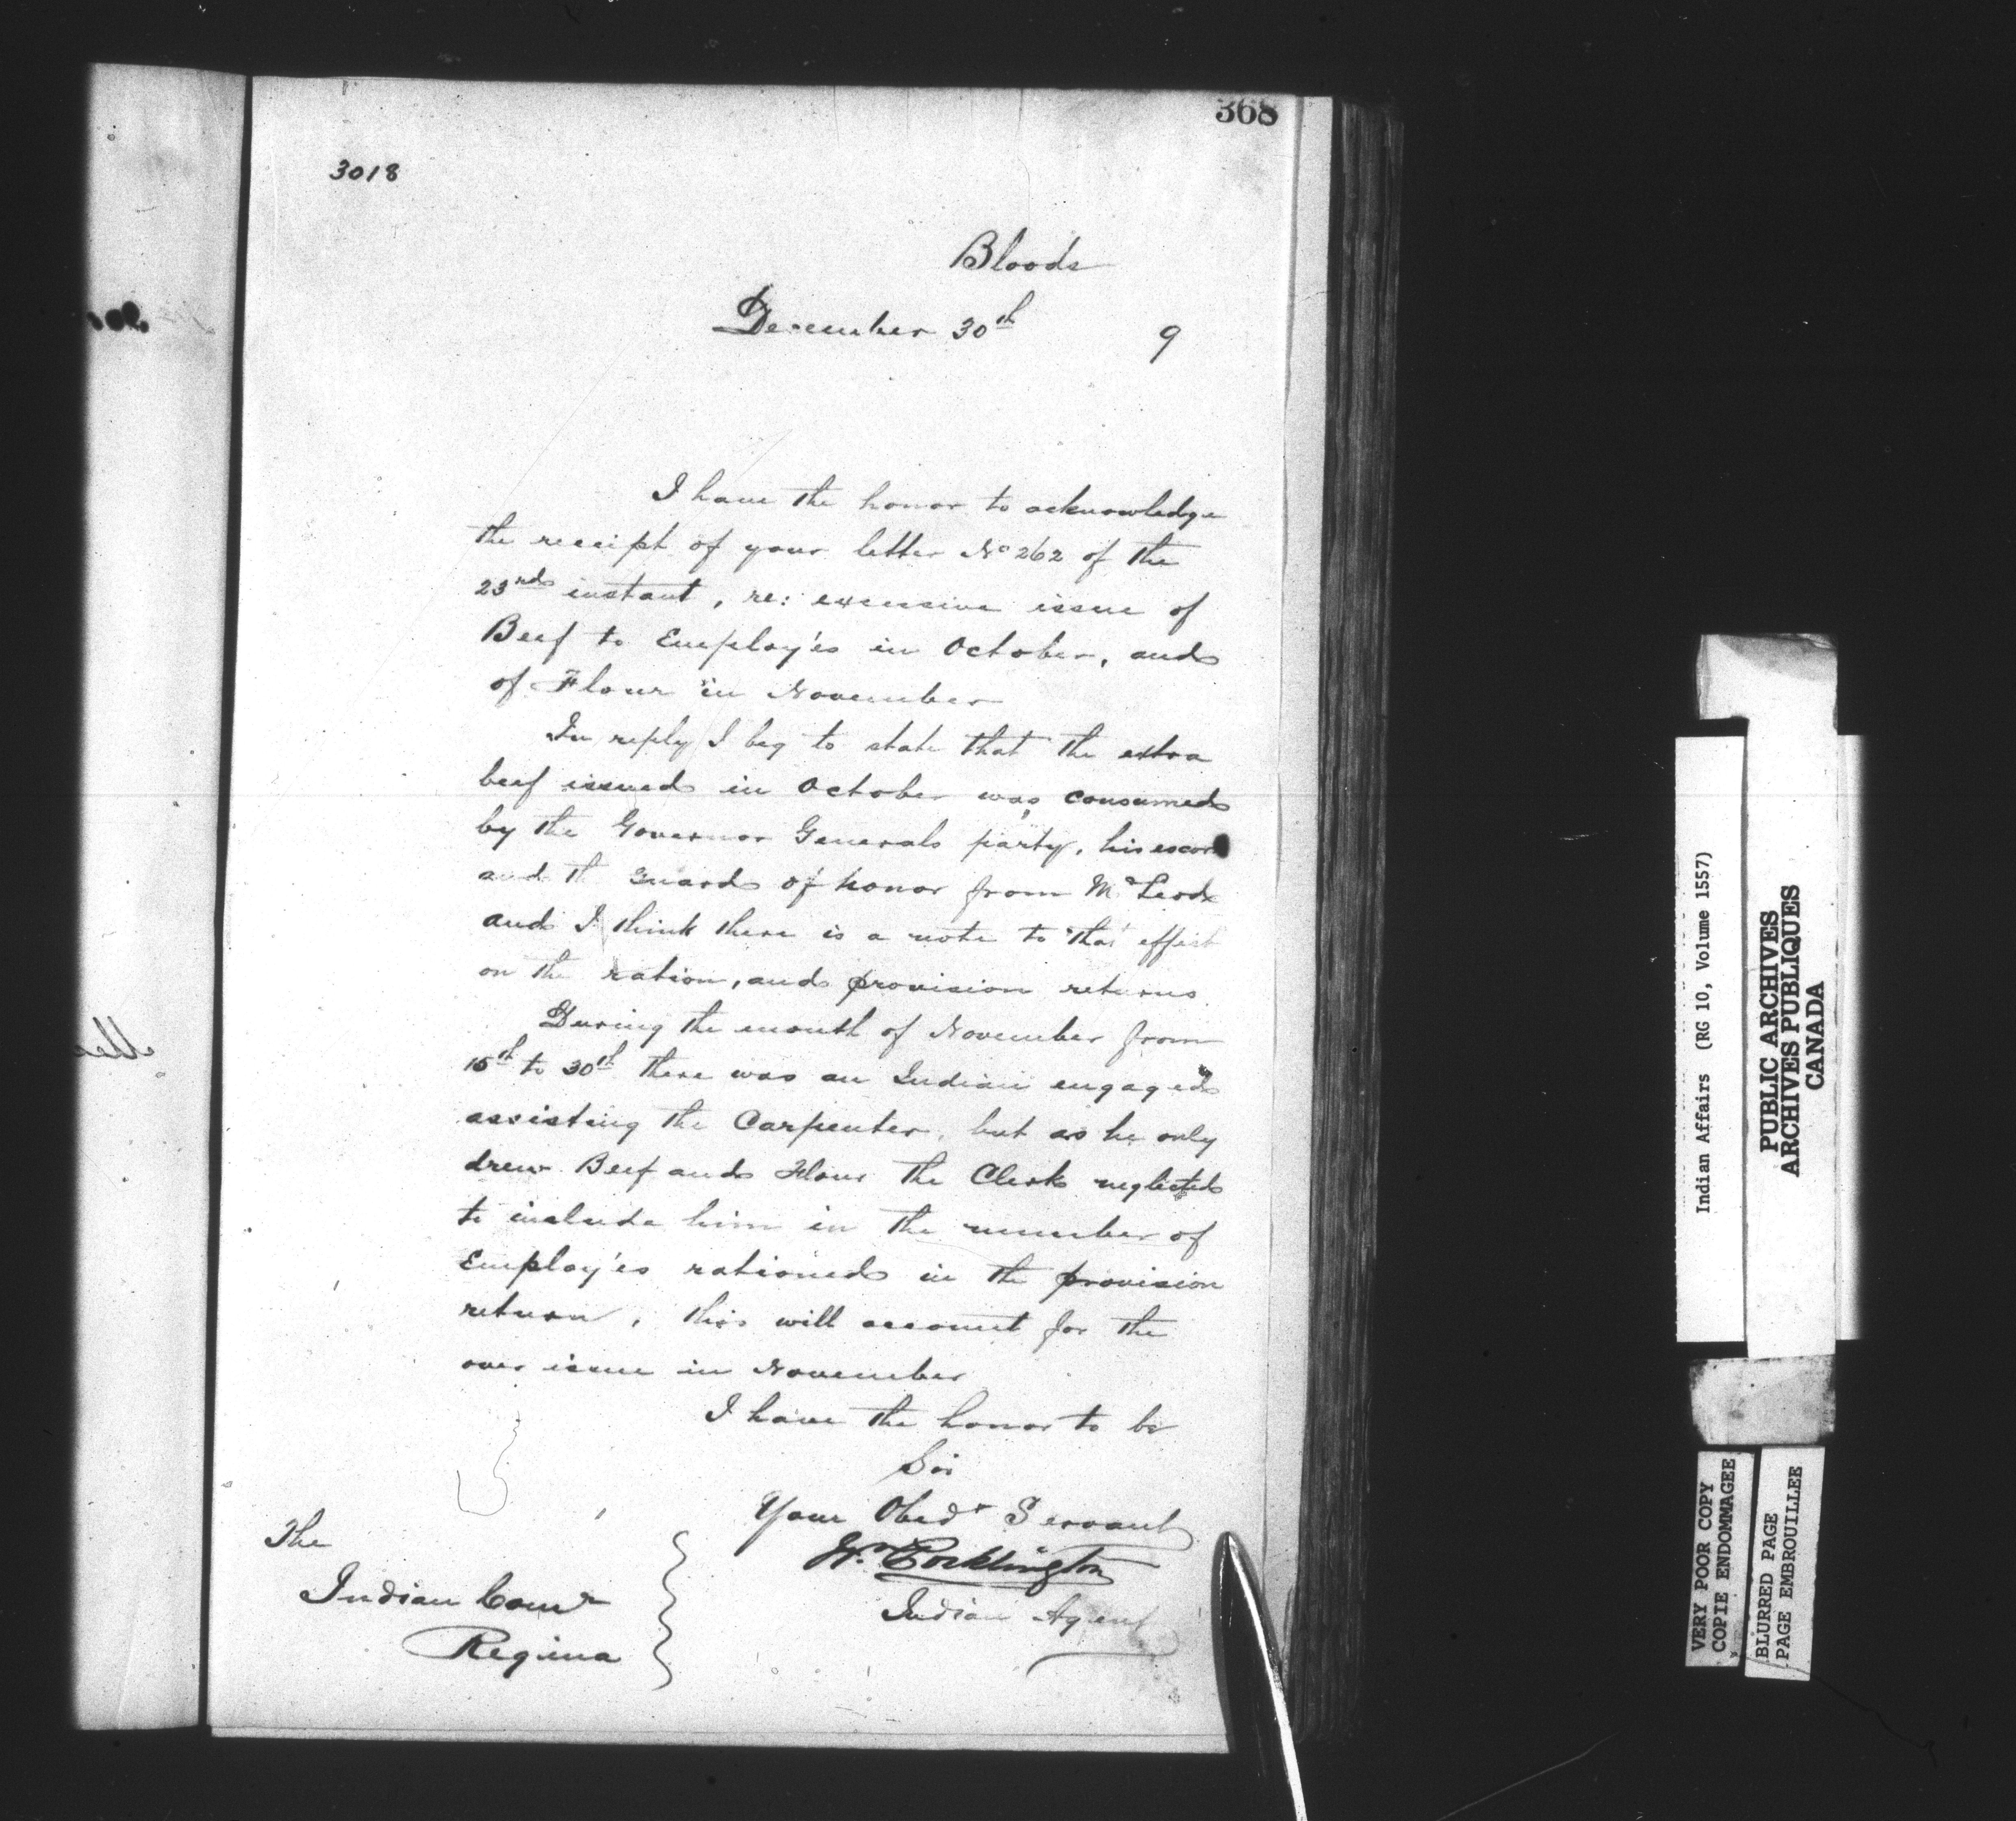 368
3018
Bloods
December 30th 9
I have the honor to acknowledge
the receipt of your letter No 262 of the
23rd instant, re: excessive issue of
Beef to Employ'es in October, and
of Flour in November
In reply I beg to state that the extra
beef issued in October was consumed
by the Governor Generals party, his escort
and the Guard of honor from McLeod
and I think there is a note to that effect
on the ration, and provision returns.
During the month of November from
15th to 30th there was an Indian engaged
assisting the Carpenter, but as he only
drew Beef and Flour the Clerk neglected
to include him in the number of
Employ'es rationed in the provision
return, this will account for the
over issue in November
I have the honor to be
Sir
Your Obedt Servant
Wm Pocklington
Indian Agent
The
Indian Comr
Regina
Indian Affairs (RG 10, Volume 1557)
PUBLIC ARCHIVES
ARCHIVES PUBLIQUES
CANADA
VERY POOR COPY
COPIE ENDOMMAGEE
BLURRED PAGE
PAGE EMBROUILLEE